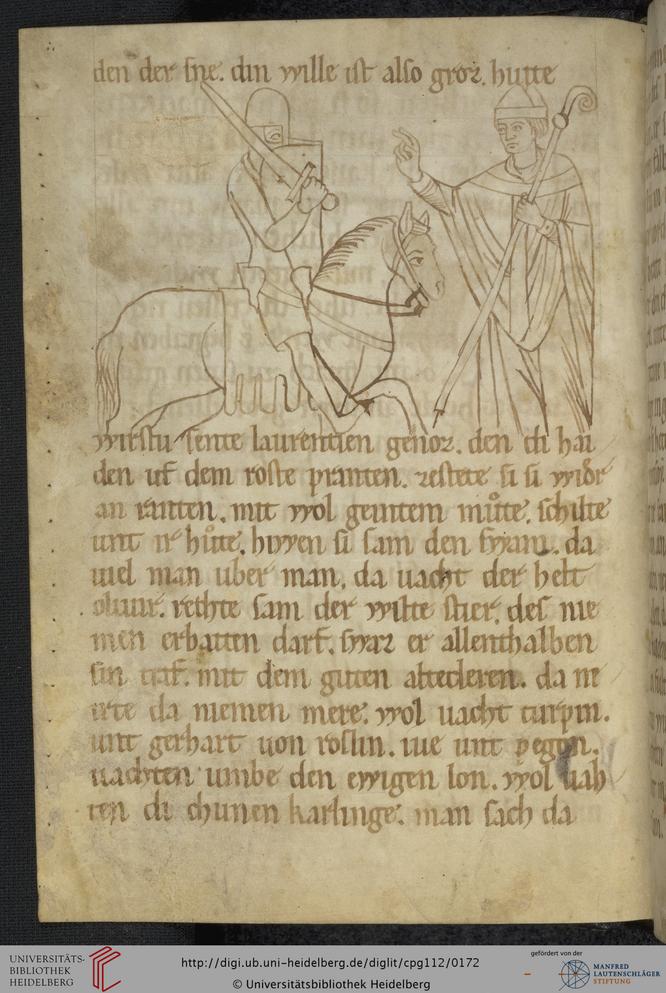 den der sne. din wille ist also groz. hutte
wirstu sente laurentien genoz. den di hai
den uf dem roste pranten. restete si si widͦr
an ranten. mit wol geuntem muͦte. schilte
unt ir huͦte. hiwen si sam den swam. da
uiel man uber man. da uacht der helt
oliuir. rechte sam der wilte stier. des nie
men erbatten darf. swaz er allenthalben
sin traf. mit dem guten altecleren. da ne
irte da niemen mere. wol uacht turpin.
unt gerhart uon roslin. iue unt pegon.
uachten umbe den ewigen lon. wol uah
ten di chunen karlinge. man sach da
UNIVERSITÄTS-
BIBLIOTHEK
HEIDELBERG
http://digi.ub.uni-heidelberg.de/diglit/cpg112/0172
© Universitätsbibliothek Heidelberg
gefördert von der
MANFRED
LAUTENSCHLÄGER
STIFTUNG